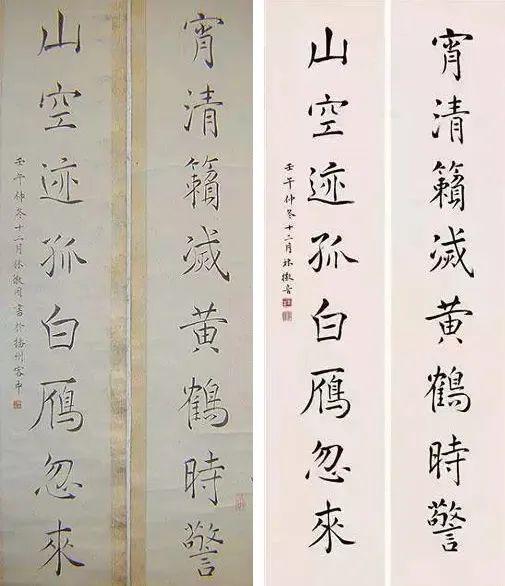 宵清籟滅黄鶴時警
山空迹孤白鴈忽來
壬午仲冬十二月林徽因書於揚州客中
宵清籟滅黄鶴時警
山空迹孤白鴈忽來
壬午仲冬十二月林徽音